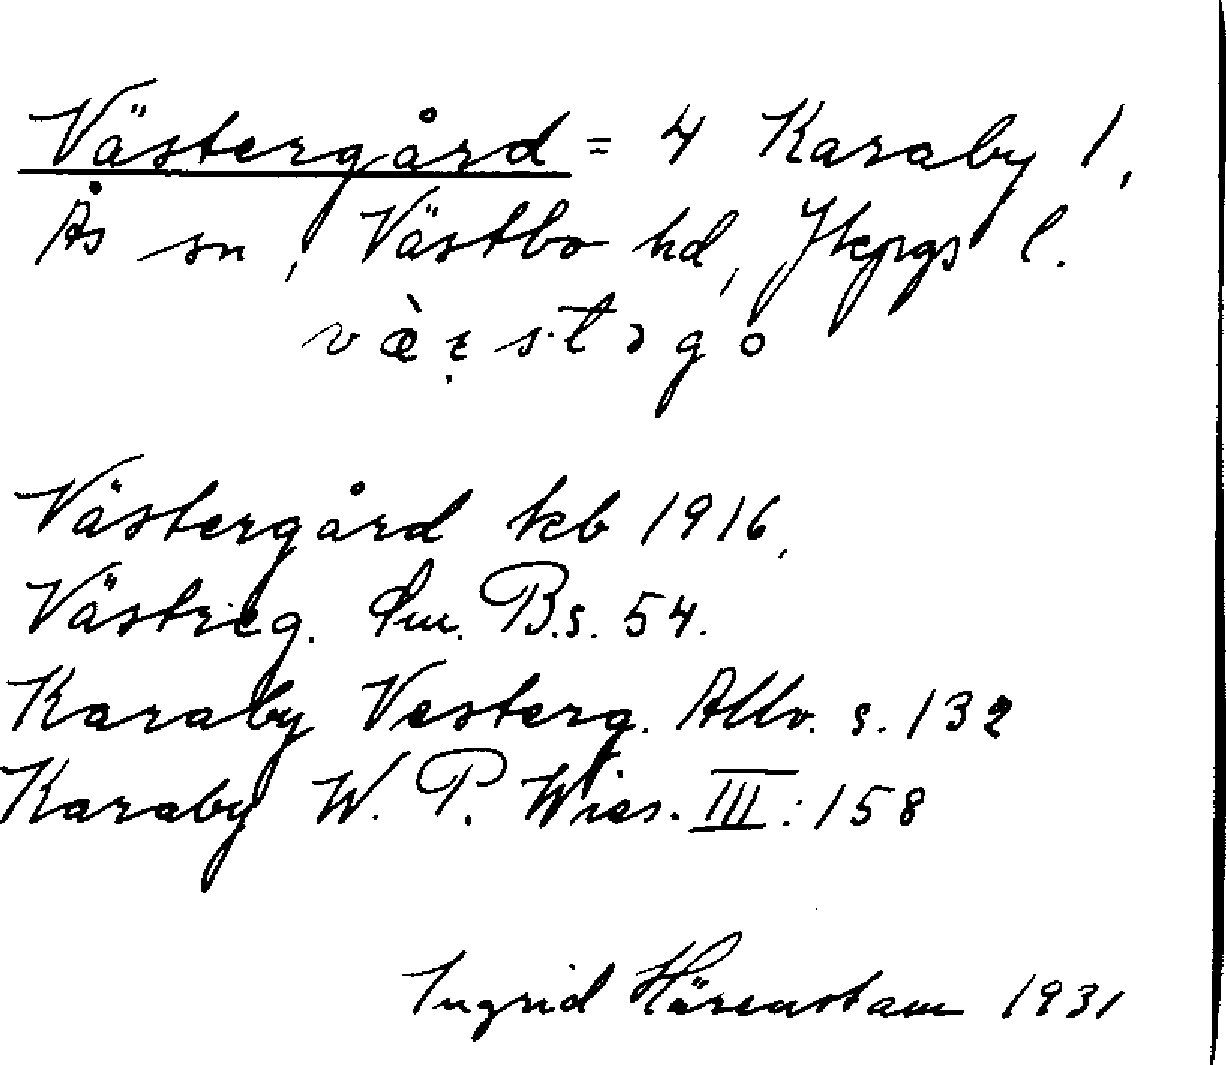 Västergård = 4 Karaby 1,
Ås sn, Västbo hd, Jkpgs l.
Västergård kb 1916,
Västrég. Sm. B. s. 54.
Karaby Vesterg. Allv. s. 132
Karaby W. P. Wies. III: 158
Ingrid Härenstam 1931